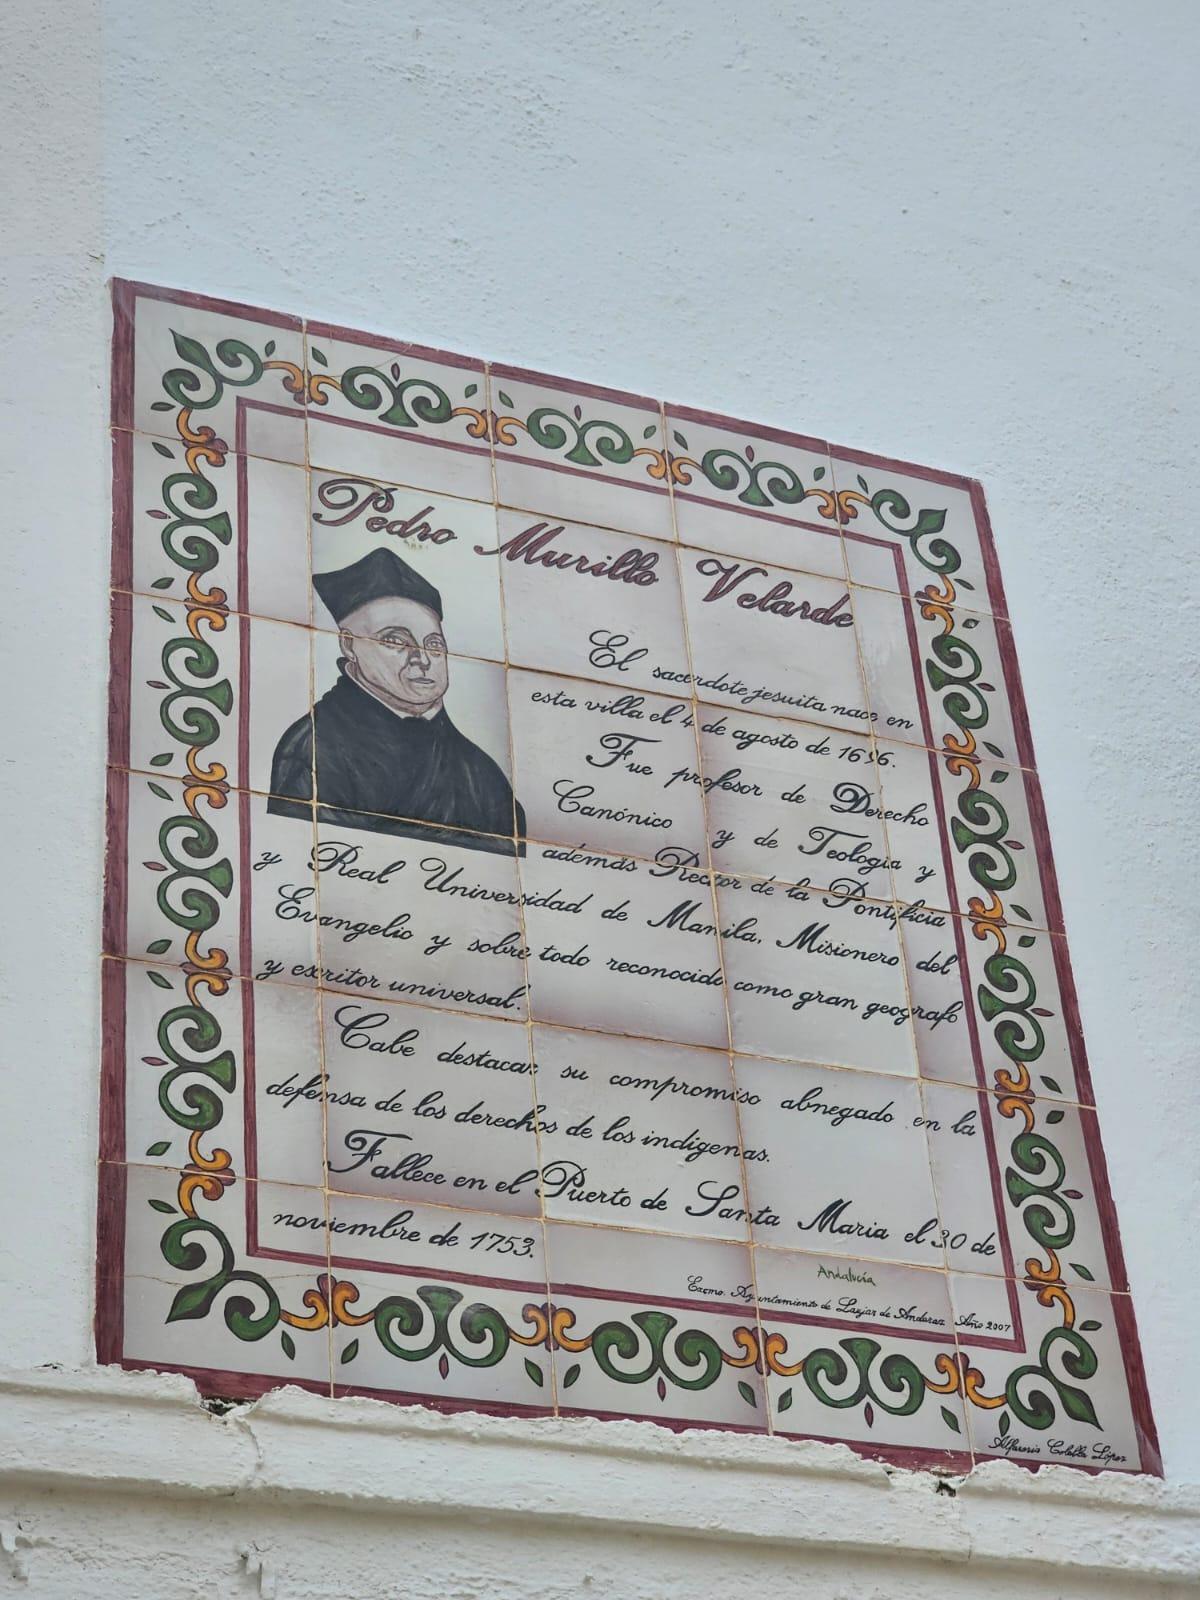 Pedro Murillo Velarde
El sacerdote jesuita nace en
esta villa el 4 de agosto de 1696.
Fue profesor de Derecho
Canónico y de Teologia y
además Rector de la Pontificia
y Real Universidad de Manila, Misionero del
Evangelio y sobre todo reconocido como gran geografo
y escritor universal.
Cabe destacar su compromiso abnegado en la
defensa de los derechos de los indigenas.
Fallece en el Puerto de Santa Maria el 30 de
noviembre de 1753.
Andalucía
Excmo. Ayuntamiento de Laujar de Andarax Año 2007
López